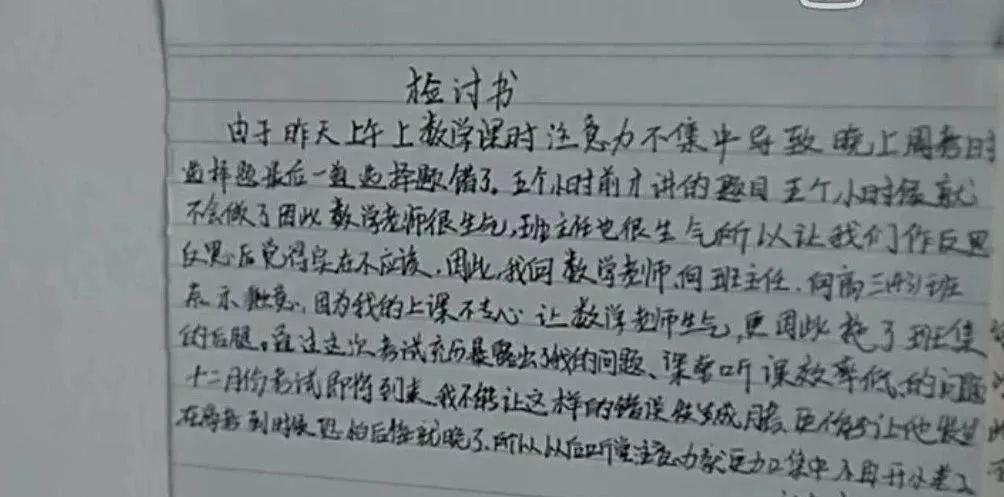 检讨书
由于昨天上午上数学课时注意力不集中导致晚上周考时
选择题最后一道选择题错了。五个小时前才讲的题目五个小时后就
不会做了因此数学老师很生气,班主任也很生气所以让我们作反思
反思后觉得实在不应该。因此,我向数学老师、向班主任、向高三班
表示歉意,因为我的上课不专心让数学老师生气,更因此拖了班集
的后腿。通过这次考试充分暴露出了我的问题、课堂听课效率低的问题
十二月份考试即将到来,我不能让这样的错误更不能让他发生
在高考到时候恐怕后悔就晚了,所以以后听课注意力就更加集中不再开小差了